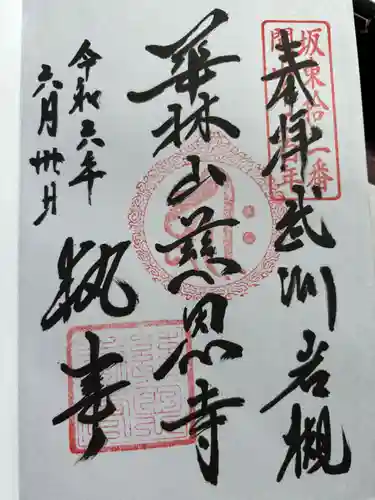 奉拝 武州岩槻
坂東拾二番
華林山慈恩寺
執事
令和六年
六月卅日